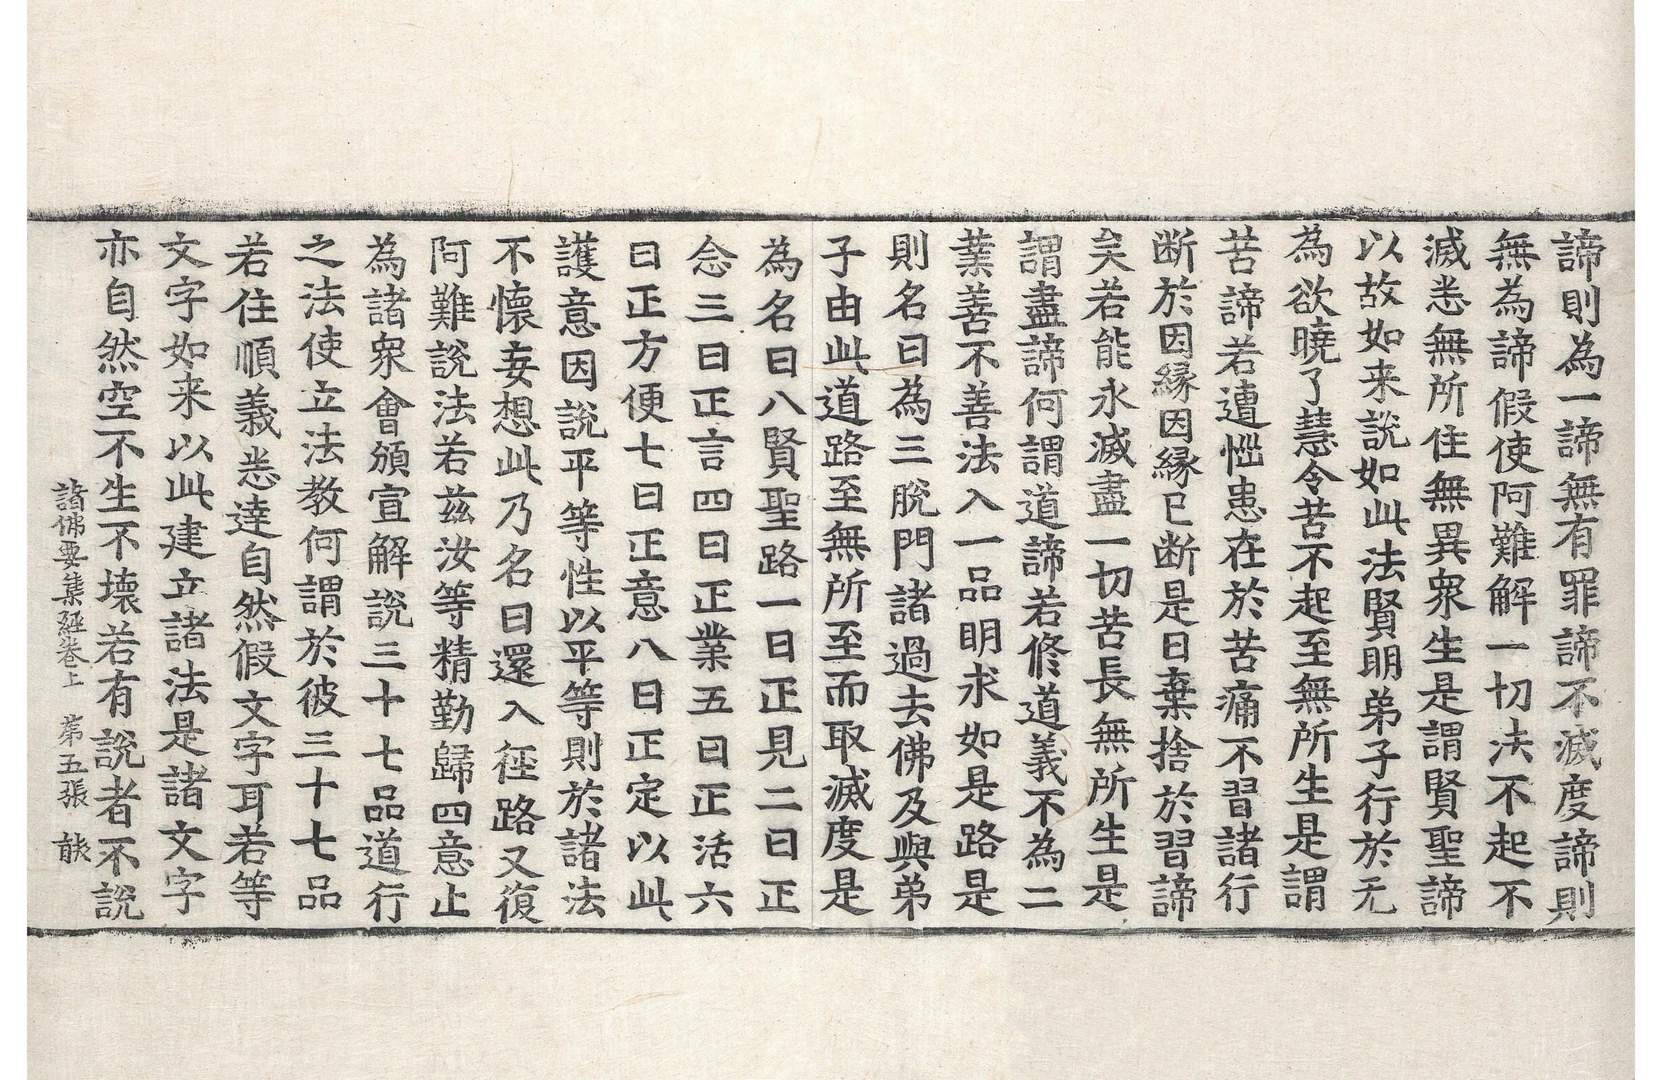 諦則為一諦無有罪諦不滅度諦則
無為諦假使阿難解一切法不起不
滅悉無所住無異衆生是謂賢聖諦
以故如来說如此法賢明弟子行於无
為欲曉了慧令苦不起至無所生是謂
苦諦若遭惱患在於苦痛不習諸行
断於因縁因縁已断是曰棄捨於習諦
矣若能永滅盡一切苦長無所生是
謂盡諦何謂道諦若修道義不為二
業善不善法入一品明求如是路是
則名曰為三脫門諸過去佛及與弟
子由此道路至無所至而取滅度是
為名曰八賢聖路一曰正見二曰正
念三曰正言四曰正業五曰正活六
曰正方便七曰正意八曰正定以此
護意因說平等性以平等則於諸法
不懷妄想此乃名曰還入徑路又復
阿難說法若兹汝等精勤歸四意止
為諸衆會頒宣解說三十七品道行
之法使立法教何謂於彼三十七品
若住順義悉達自然假文字耳若等
文字如来以此建立諸法是諸文字
亦自然空不生不壊若有說者不說
諸佛要集經卷上　第五張　䏻